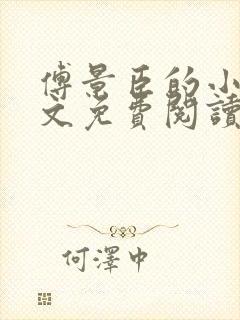 傅景臣的小
文免費閱讀
何澤中